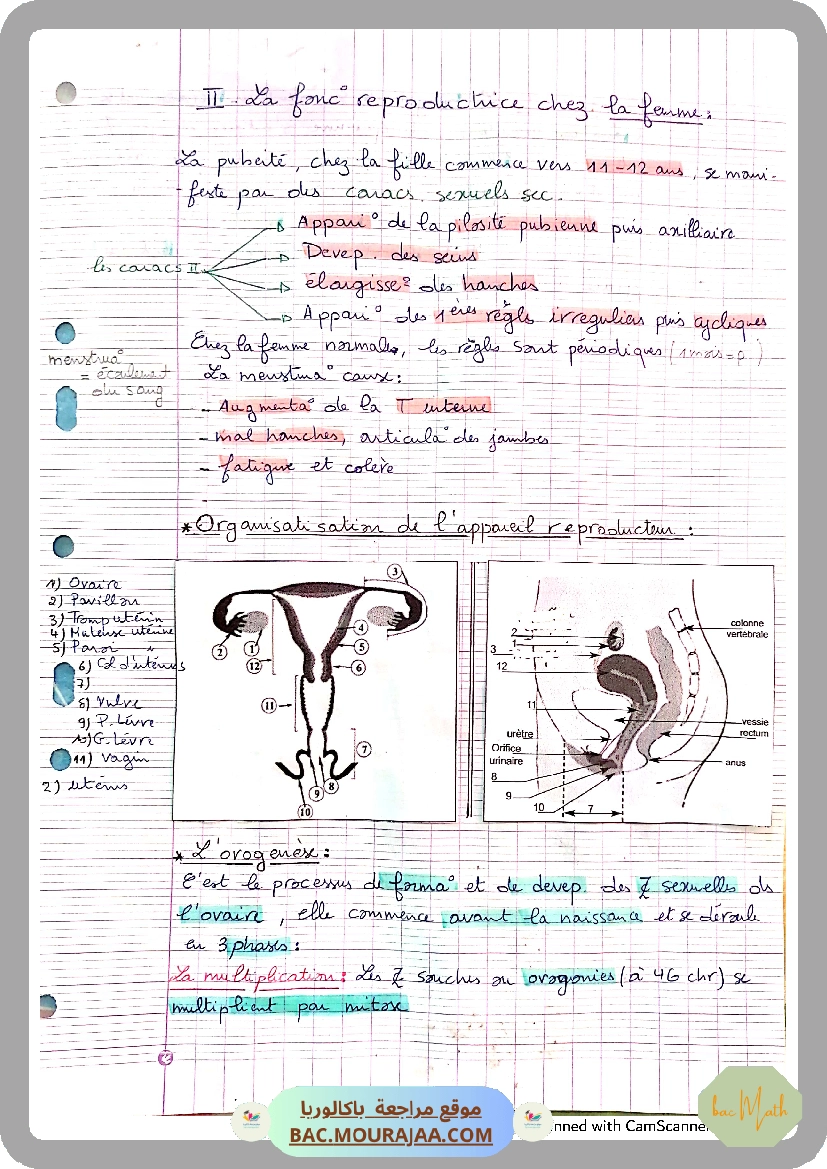 II. La fonc° reproductrice chez la femme :
La puberté, chez la fille commence vers 11-12 ans, se mani-
-feste par des caracs. sexuels sec.
Appari° de la pilosité pubienne puis axilliaire
Devep. des seins
les caracs II
élargisse² des hanches
Appari° des 1ères règls irreguliers puis cycliques
Chez la femme normale, les règls sont périodiques (1 mois = p.)
menstrua°
= écoulement
du sang
La menstrua° caux :
- Augmenta° de la T interne
- mal hanches, articula° des jambes
- fatigue et colère
-
* Organisatisation de l'appareil reproducteur :
1) Ovaire
2) Pavillon
3) Tromp utérin
4) utérine
5) Paroi "
6) Col d'utérus
7)
8) Vulve
9) P. Lèvre
10) G. Lèvre
11) Vagin
2) utérus
3
4
5
6
2
1
12
11
7
8
9
10
colonne
vertébrale
2
1
3
12
11
vessie
rectum
urètre
Orifice
urinaire
anus
8
9
10
7
* L'ovogenèse :
C'est le processus de forma° et de devep. des Z sexuelles ds
l'ovaire, elle commence avant la naissance et se déroule
en 3 phases :
La multiplication : Les Z souches ou ovogonies (à 46 chr) se
multiplient par mitose
موقع مراجعة باكالوريا
BAC.MOURAJAA.COM
nned with CamScanner
bac Math